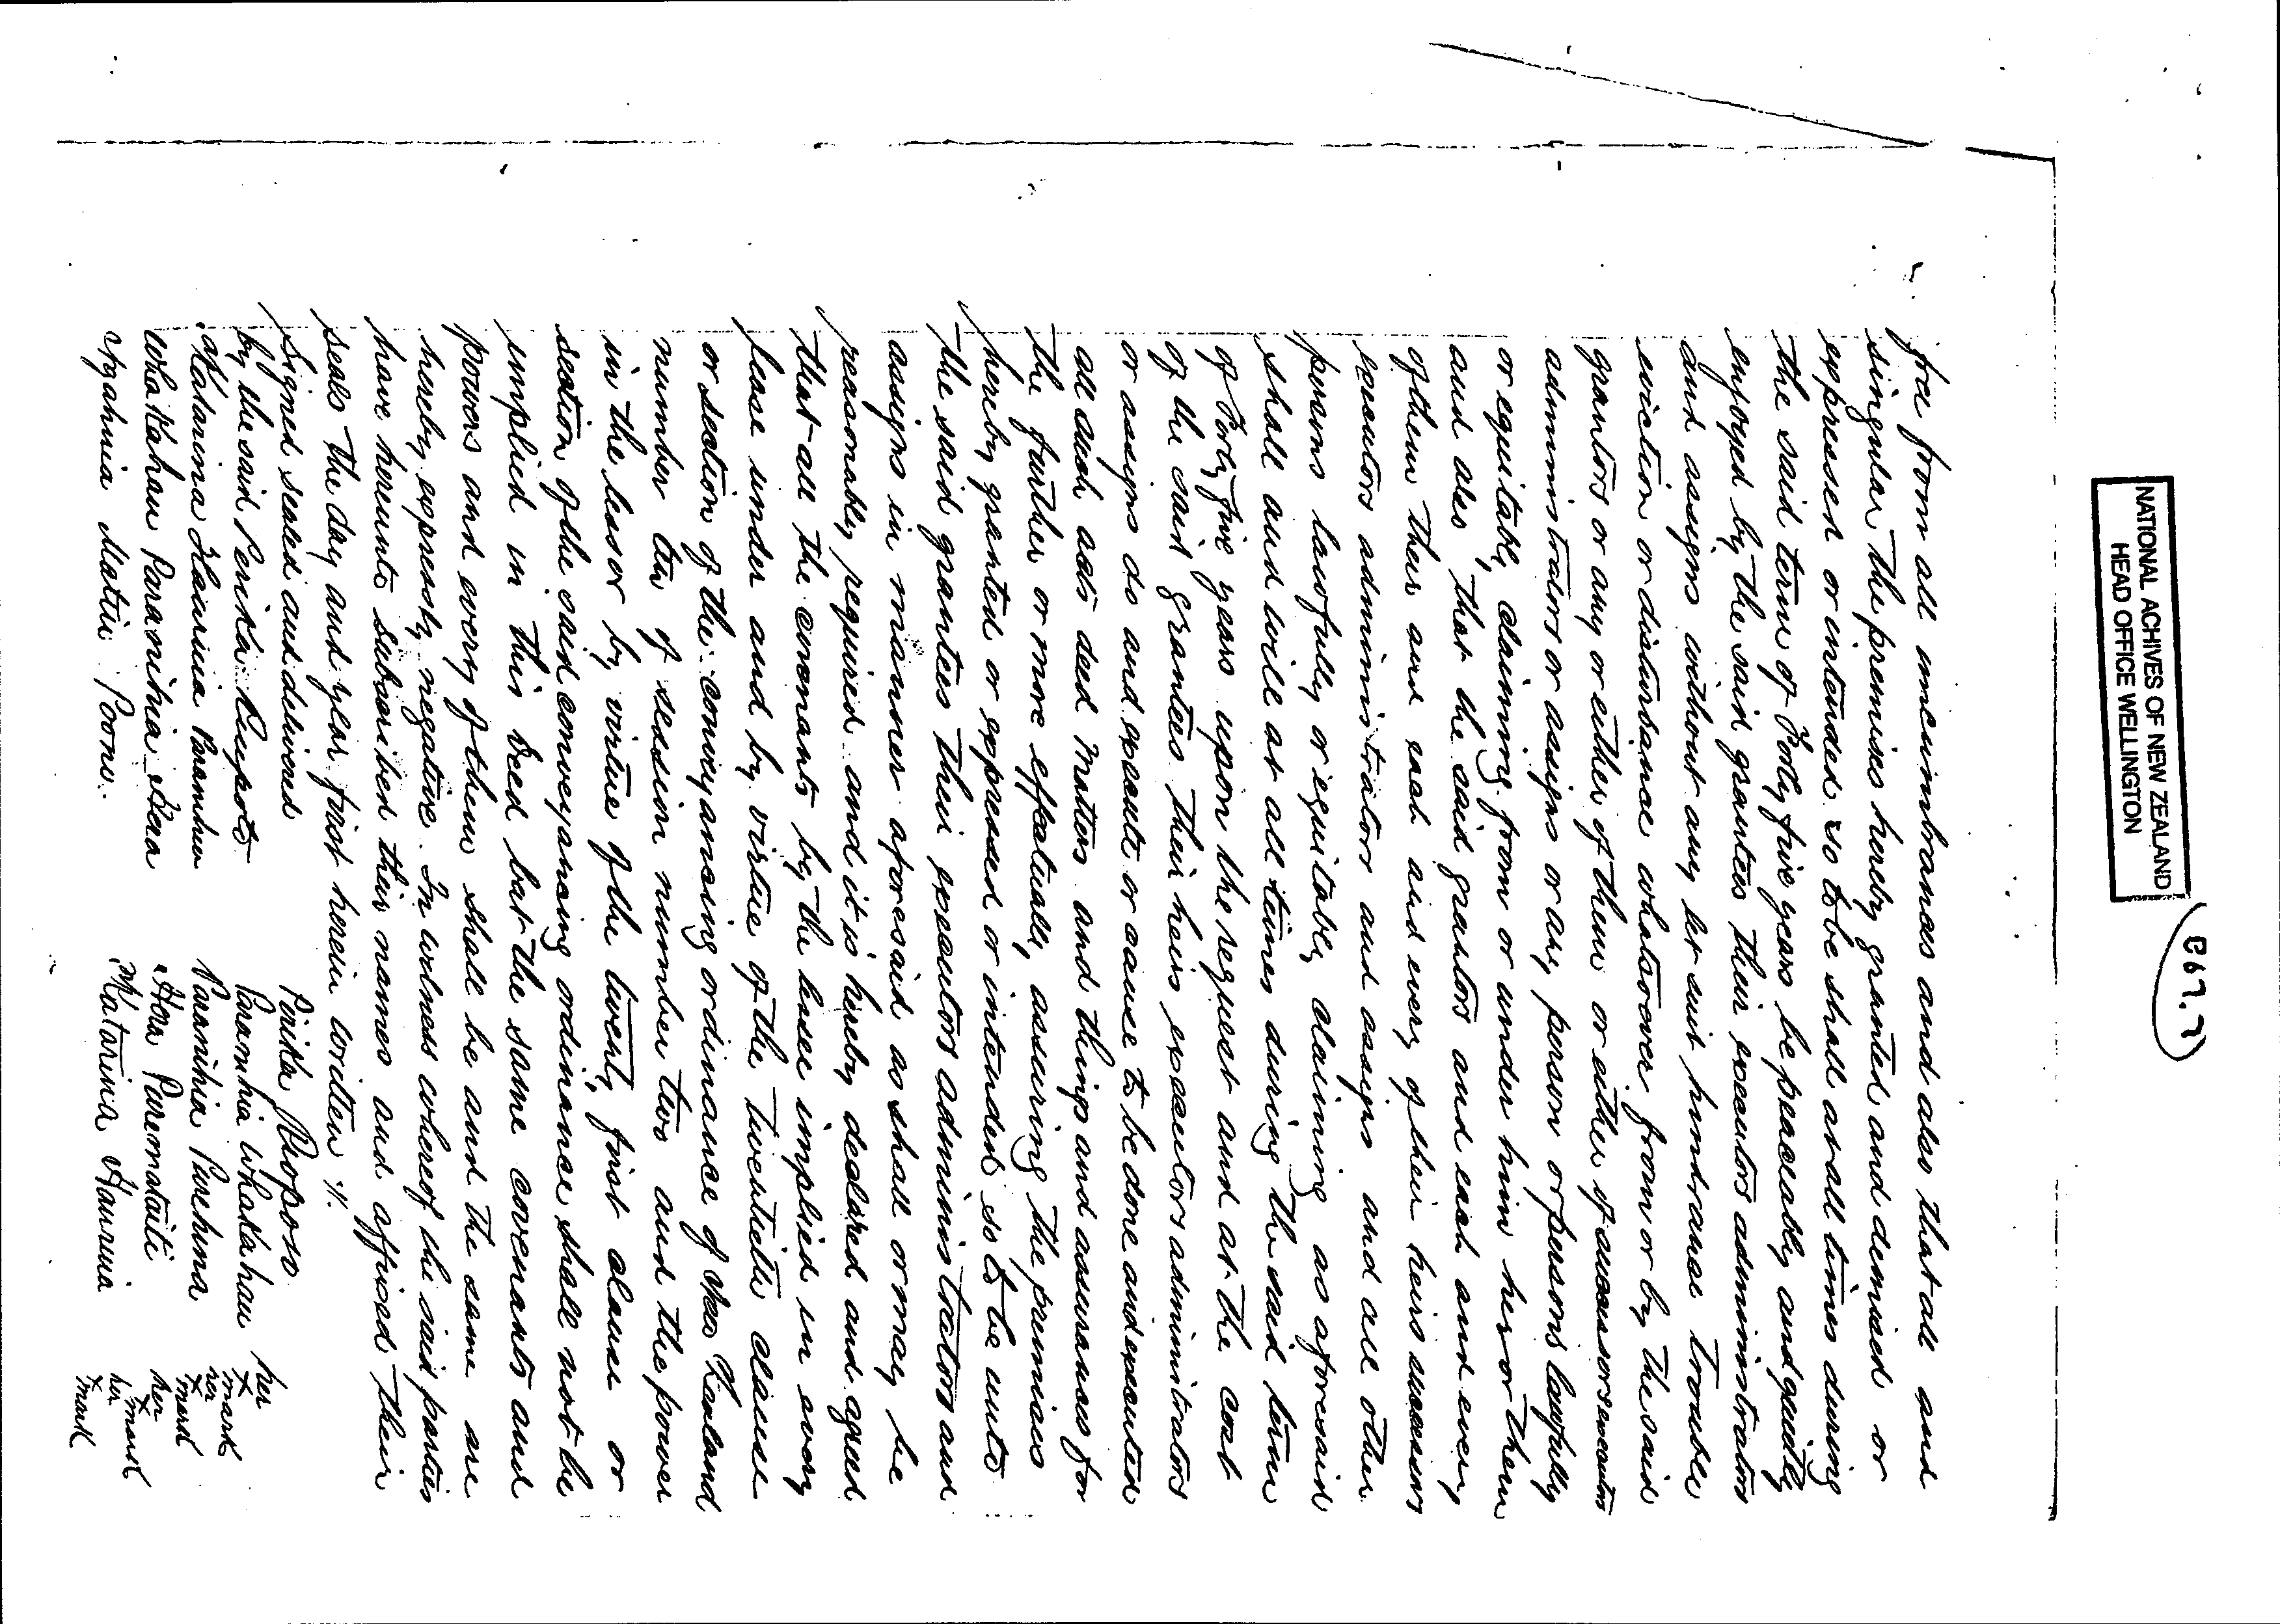 NATIONAL ACHIVES OF NEW ZEALAND
HEAD OFFICE WELLINGTON
free from all incumbrances and also that all and
singular the premises hereby granted and demised or
expressed or intended so to be shall at all times during
the said term of Forty five years be peaceably and quietly
enjoyed by the said grantees their executors administrators
and assigns without any let suit hindrance trouble
eviction or disturbance whatsoever from or by the said
grantors or any or either of them or either of successors executors
administrators or assigns or any person or persons lawfully
or equitably claiming from or under him her or them
and also that the said grantors and each and every
of them their and each and every of their heirs successors
executors administrators and assigns and all other
persons lawfully or equitably claiming as aforesaid
shall and will at all times during the said term
of Forty five years upon the request and at the cost
of the said grantees their heirs executors administrators
or assigns do and execute or cause to be done and executed
all such acts deed matters and things and assurances for
the further or more effectually assuring the premises
hereby granted or expressed or intended so to be unto
the said grantees their executors administrators and
assigns in manner aforesaid as shall or may be
reasonably required and it is hereby declared and agreed
that all the covenants by the lessee implied in every
lease under and by virtue of the twentieth clause
or section of the conveyancing ordinance of New Zealand
number ten of session number two and the power
in the lessor by virtue of the twenty first clause or
section of the said conveyancing ordinance shall not be
implied in this Deed but the same covenants and
powers and every of them shall be and the same are
hereby expressly negative. In witness whereof the said parties
have hereunto subscribed their names and affixed their
seals the day and year first herein written
Signed sealed and delivered
by the said Perika
Katarina Hauruia
Whakahau Paramihia Hera
Ngahuia Matiu Poono.
Perika
Paramhia Whakahau her x mark
Paranihia Purehina her x mark
Hera Paremataiti her x mark
Katarina Hauruia her x mark